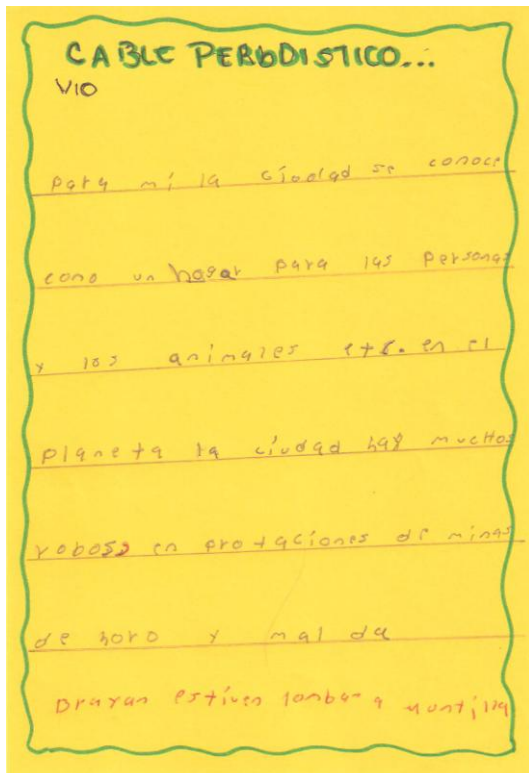 CABLE PERIODISTICO...
VIO
para mi la ciudad se conoce
como un hogar para las personas
y los animales etc. en el
planeta la ciudad hay muchos
roboss en protaciones de minas
de horo y mal da
Brayan estiven